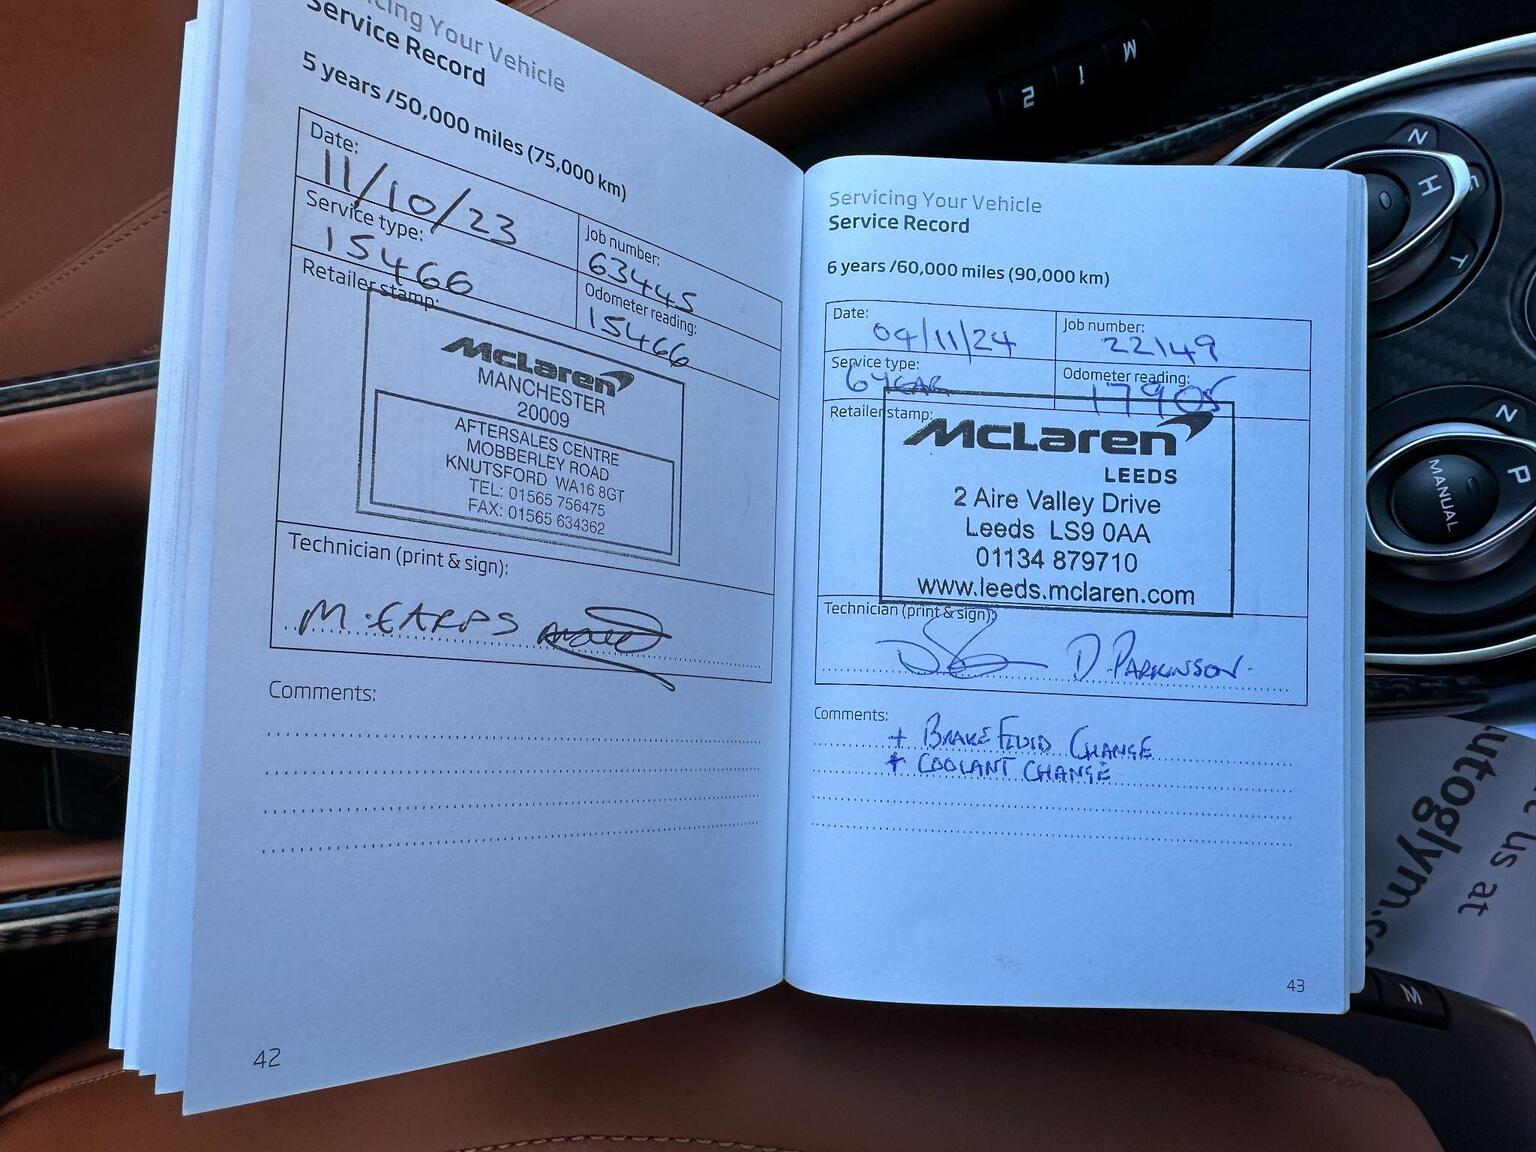 Servicing Your Vehicle
Service Record
5 years /50,000 miles (75,000 km)
Date:
11/10/23
Job number:
63445
Service type:
15466
Odometer reading:
15466
Retailer stamp:
McLaren
MANCHESTER
20009
AFTERSALES CENTRE
MOBBERLEY ROAD
KNUTSFORD WA16 8GT
TEL: 01565 756475
FAX: 01565 634362
Technician (print & sign):
Comments:
42
Servicing Your Vehicle
Service Record
6 years /60,000 miles (90,000 km)
Date:
04/11/24
Job number:
22149
Service type:
6 YEAR
Odometer reading:
17905
Retailer stamp:
McLaren
LEEDS
2 Aire Valley Drive
Leeds LS9 0AA
01134 879710
www.leeds.mclaren.com
Technician (print & sign):
D. PARKINSON.
Comments:
+ BRAKE FLUID CHANGE
+ COOLANT CHANGE
43
M
1
2
N
H
T
N
P
MANUAL
us at
autoglym.co
M